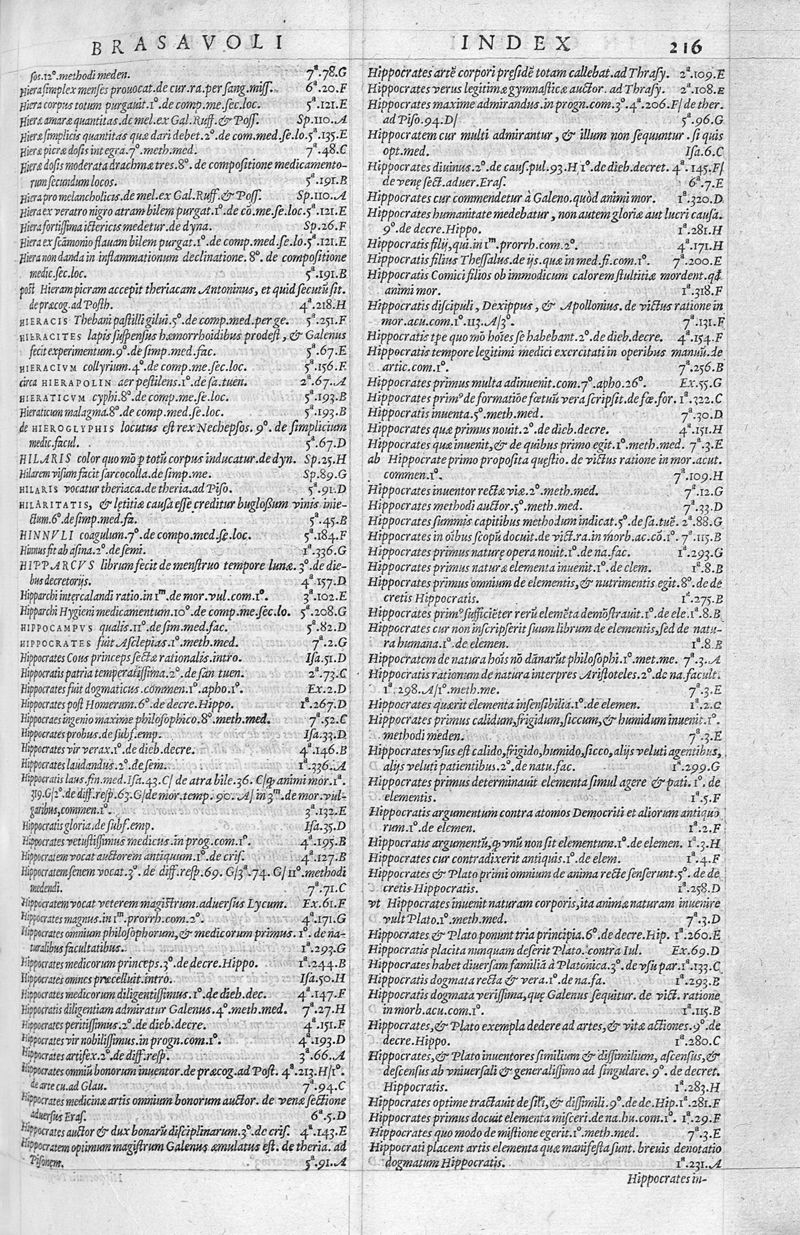 BRASAVOLI
fos.12º.methodi meden. 7ª.78.G
Hiera simplex menses prouocat.de cur.ra.per sang.miss. 6ª.20.F
Hiera corpus totum purgauit.1º.de comp.me.sec.loc. 5ª.121.E
Hieræ amaræ quantitas.de mel.ex Gal.Ruff.& Poss. Sp.110.A
Hieræ simplicis quantitas quæ dari debet.2º.de com.med.se.lo.5ª.135.E
Hieræ picræ dosis integra.7º.meth.med. 7ª.48.C
Hieræ dosis moderata drachmæ tres.8º. de compositione medicamento-
rum secundum locos. 5ª.191.B
Hiera pro melancholicis.de mel.ex Gal.Ruff.& Poss. Sp.110.A
Hiera ex veratro nigro atram bilem purgat.1º.de cō.me.se.loc.5ª.121.E
Hiera fortissima ictericis medetur.de dyna. Sp.26.F
Hiera ex scāmonio flauam bilem purgat.1º.de comp.med.se.lo.5ª.121.E
Hiera non danda in inflammationum declinatione. 8º. de compositione
medic.sec.loc. 5ª.191.B
post Hieram picram accepit theriacam Antoninus, et quid secutū sit.
de præcog.ad Posth. 4ª.218.H
HIERACIS Thebani pastilli gilui.5º.de comp.med.per ge. 5ª.251.F
HIERACITES lapis suspensus hæmorrhoidibus prodest, & Galenus
fecit experimentum.9º.de simp.med.fac. 5ª.67.E
HIERACIVM collyrium.4º.de comp.me.sec.loc. 5ª.156.F
circa HIERAPOLIN aer pestilens.1º.de sa.tuen. 2ª.67.A
HIERATICVM cyphi.8º.de comp.me.sec.loc. 5ª.193.B
Hieraticum malagma.8º.de comp.med.sec.loc. 5ª.193.B
de HIEROGLYPHIS locutus est rex Nechepsos. 9º. de simplicium
medic.facul. 5ª.67.D
HILARIS color quo mō p totū corpus inducatur.de dyn. Sp.25.H
Hilarem visum facit sarcocolla.de simp.me. Sp.89.G
HILARIS vocatur theriaca.de theria.ad Piso. 5ª.91.D
HILARITATIS, & lętitiæ causa esse creditur buglossum vinis inie-
ctum.6º.de simp.med.fa. 5ª.45.B
HINNVLI coagulum.7º.de compo.med.se.loc. 5ª.184.F
Hinnus fit ab asina.2º.de semi. 1ª.336.G
HIPPARCVS librum fecit de menstruo tempore lunæ. 3º.de die-
bus decretorijs. 4ª.157.D
Hipparchi intercalandi ratio.in 1m.de mor.vul.com.1º. 3ª.102.E
Hipparchi Hygieni medicamentum.10º.de comp.me.sec.lo. 5ª.208.G
HIPPOCAMPVS qualis.11º.de sim.med.fac. 5ª.82.D
HIPPOCRATES fuit Asclepias.1º.meth.med. 7ª.2.G
Hippocrates Cous princeps sectæ rationalis.intro. Isa.51.D
Hippocratis patria temperatissima.2º.de san tuen. 2ª.73.C
Hippocrates fuit dogmaticus.commen.1º.apho.1º. Ex.2.D
Hippocrates post Homerum.6º.de decre.Hippo. 1ª.267.D
Hippocraes ingenio maxime philosophico.8º.meth.med. 7ª.52.C
Hippocrates probus.de subf.emp. Isa.33.D
Hippocrates vir verax.1º.de dieb.decre. 4ª.146.B
Hippocrates laudandus.2º.de sem. 1ª.336.A
Hippocratis laus.fin.med.Isa.43.C/ de atra bile.36. C/ꝙ animi mor.1ª.
319.G/2º.de diff.resp.63.G/de mor.temp. 90.A/ in 3m.de mor.vul-
garibus,commen.1º. 3ª.132.E
Hippocratis gloria.de subf.emp. Isa.35.D
Hippocrates vetustissimus medicus.in prog.com.1º. 4ª.195.B
Hippocratem vocat auctorem antiquum.1º.de cris. 4ª.127.B
Hippocratem senem vocat.3º. de diff.resp.69. G/3ª.74. G/11º.methodi
medendi. 7ª.71.C
Hippocratem vocat veterem magistrum.aduersus Lycum. Ex.61.F
Hippocrates magnus.in 1m.prorrh.com.2º. 4ª.171.G
Hippocrates omnium philosophorum,& medicorum primus. 1º. de na-
turalibus facultatibus. 1ª.293.G
Hippocrates medicorum princeps.3º.de decre.Hippo. 1ª.244.B
Hippocrates omnes præcelluit.intro. Isa.50.H
Hippocrates medicorum diligentissimus.1º.de dieb.dec. 4ª.147.F
Hippocratis diligentiam admiratur Galenus.4º.meth.med. 7ª.27.H
Hippocrates peritissimus.2º.de dieb.decre. 4ª.151.F
Hippocrates vir nobilissimus.in progn.com.1º. 4ª.193.D
Hippocrates artifex.2º.de diff.resp. 3ª.66.A
Hippocrates omniū bonorum inuentor.de præcog.ad Post. 4ª.213.H/1º.
de arte cu.ad Glau. 7ª.94.C
Hippocrates medicinæ artis omnium bonorum auctor. de venæ sectione
aduersus Eras. 6ª.5.D
Hippocrates auctor & dux bonarū disciplinarum.3º.de cris. 4ª.143.E
Hippocratem optimum magistrum Galenus æmulatus est. de theria. ad
Pisonem. 5ª.91.A
INDEX 216
Hippocrates artē corpori presidē totam callebat.ad Thrasy. 2ª.109.E
Hippocrates verus legitimæ gymnasticæ auctor. ad Thrasy. 2ª.108.E
Hippocrates maxime admirandus.in progn.com.3º.4ª.206.F/ de ther.
ad Piso.94.D/ 5ª.96.G
Hippocratem cur multi admirantur, & illum non sequuntur. si quis
opt.med. Isa.6.C
Hippocrates diuinus.2º.de caus.pul.93.H/1º.de dieb.decret. 4ª.145.F/
de venę sect.aduer.Eras. 6ª.7.E
Hippocrates cur commendetur à Galeno.quòd animi mor. 1ª.320.D
Hippocrates humanitate medebatur, non autem gloriæ aut lucri causa.
9º.de decre.Hippo. 1ª.281.H
Hippocratis filij, qui.in 1m.prorrh.com.2º. 4ª.171.H
Hippocratis filius Thessalus.de ijs.quæ in med.fi.com.1º. 7ª.200.E
Hippocratis Comici filios ob immodicum calorem stultitiæ mordent.qd
animi mor. 1ª.318.F
Hippocratis discipuli, Dexippus, & Apollonius. de victus ratione in
mor.acu.com.1º.113.A/3º. 7ª.131.F
Hippocratis tpe quo mō hoīes se habebant.2º.de dieb.decre. 4ª.154.F
Hippocratis tempore legitimi medici exercitati in operibus manuū.de
artic.com.1º. 7ª.256.B
Hippocrates primus multa adinuenit.com.7º.apho.26º. Ex.55.G
Hippocrates primº de formatiōe fœtuū vera scripsit.de fœ.for. 1ª.322.C
Hippocratis inuenta.5º.meth.med. 7ª.30.D
Hippocrates quæ primus nouit.2º.de dieb.decre. 4ª.151.H
Hippocrates quæ inuenit,& de quibus primo egit.1º.meth.med. 7ª.3.E
ab Hippocrate primo proposita quęstio. de victus ratione in mor.acut.
commen.1º. 7ª.109.H
Hippocrates inuentor rectæ viæ.2º.meth.med. 7ª.12.G
Hippocrates methodi auctor.5º.meth.med. 7ª.33.D
Hippocrates summis capitibus methodum indicat.5º.de sa.tuē. 2ª.88.G
Hippocrates in oībus scopū docuit.de vict.ra.in morb.ac.cō.1º. 7ª.115.B
Hippocrates primus naturę opera nouit.1º.de na.fac. 1ª.293.G
Hippocrates primus naturæ elementa inuenit.1º.de clem. 1ª.8.B
Hippocrates primus omnium de elementis,& nutrimentis egit.8º.de de
cretis Hippocratis. 1ª.275.B
Hippocrates primº sufficiēter rerū elemēta demōstrauit.1º.de ele.1ª.8.B
Hippocrates cur non inscripserit suum librum de elementis,sed de natu-
ra humana.1º.de elemen. 1ª.8.B
Hippocratem de natura hoīs nō dānarūt philosophi.1º.met.me. 7ª.3.A
Hippocratis rationum de natura interpres Aristoteles.2º.de na.facult.
1ª.298.A/1º.meth.me. 7ª.3.E
Hippocrates quærit elementa insensibilia.1º.de elemen. 1ª.2.C
Hippocrates primus calidum,frigidum,siccum,& humidum inuenit.1º.
methodi meden. 7ª.3.E
Hippocrates vsus est calido,frigido,humido,sicco,alijs veluti agentibus,
alijs veluti patientibus.2º.de natu.fac. 1ª.299.G
Hippocrates primus determinauit elementa simul agere & pati. 1º. de
elementis. 1ª.5.F
Hippocratis argumentum contra atomos Democriti et aliorum antiquo
rum.1º.de elemen. 1ª.2.F
Hippocratis argumentū,ꝙ vnū non sit elementum.1º.de elemen. 1ª.3.H
Hippocrates cur contradixerit antiquis.1º.de elem. 1ª.4.F
Hippocrates & Plato primi omnium de anima recte senserunt.5º. de de
cretis Hippocratis. 1ª.258.D
vt Hippocrates inuenit naturam corporis,ita animæ naturam inuenire
vult Plato.1º.meth.med. 7ª.3.D
Hippocrates & Plato ponunt tria principia.6º.de decre.Hip. 1ª.260.E
Hippocratis placita nunquam deserit Plato.contra Iul. Ex.69.D
Hippocrates habet diuersam familiā à Platonica.3º.de vsu par.1ª.133.C
Hippocratis dogmata recta & vera.1º.de na.fa. 1ª.293.B
Hippocratis dogmata verissima, quę Galenus sequitur. de vict. ratione
in morb.acu.com.1º. 1ª.115.B
Hippocrates,& Plato exempla dedere ad artes,& vitæ actiones.9º.de
decre.Hippo. 1ª.280.C
Hippocrates,& Plato inuentores similium & dissimilium, ascensus,&
descensus ab vniuersali & generalissimo ad singulare. 9º. de decret.
Hippocratis. 1ª.283.H
Hippocrates optime tractauit de sili,& dissimili.9º.de de.Hip.1ª.281.F
Hippocrates primus docuit elementa misceri.de na.hu.com.1º. 1ª.29.F
Hippocrates quo modo de mistione egerit.1º.meth.med. 7ª.3.E
Hippocrati placent artis elementa quæ manifesta sunt. breuis denotatio
dogmatum Hippocratis. 1ª.231.A
Hippocrates in-